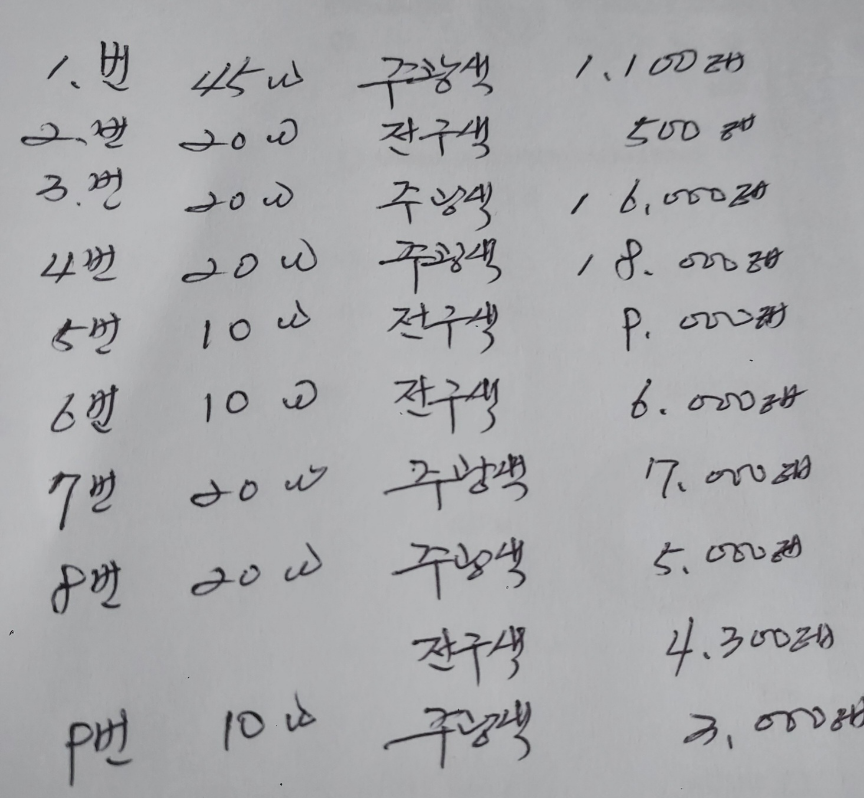 1. 번 45W 주광색 1.100개
2. 번 20W 전구색 500개
3. 번 20W 주광색 16.000개
4번 20W 주광색 18.000개
5번 10W 전구색 9.000개
6번 10W 전구색 6.000개
7번 20W 주광색 7.000개
8번 20W 주광색 5.000개
전구색 4.300개
9번 10W 주광색 3.000개